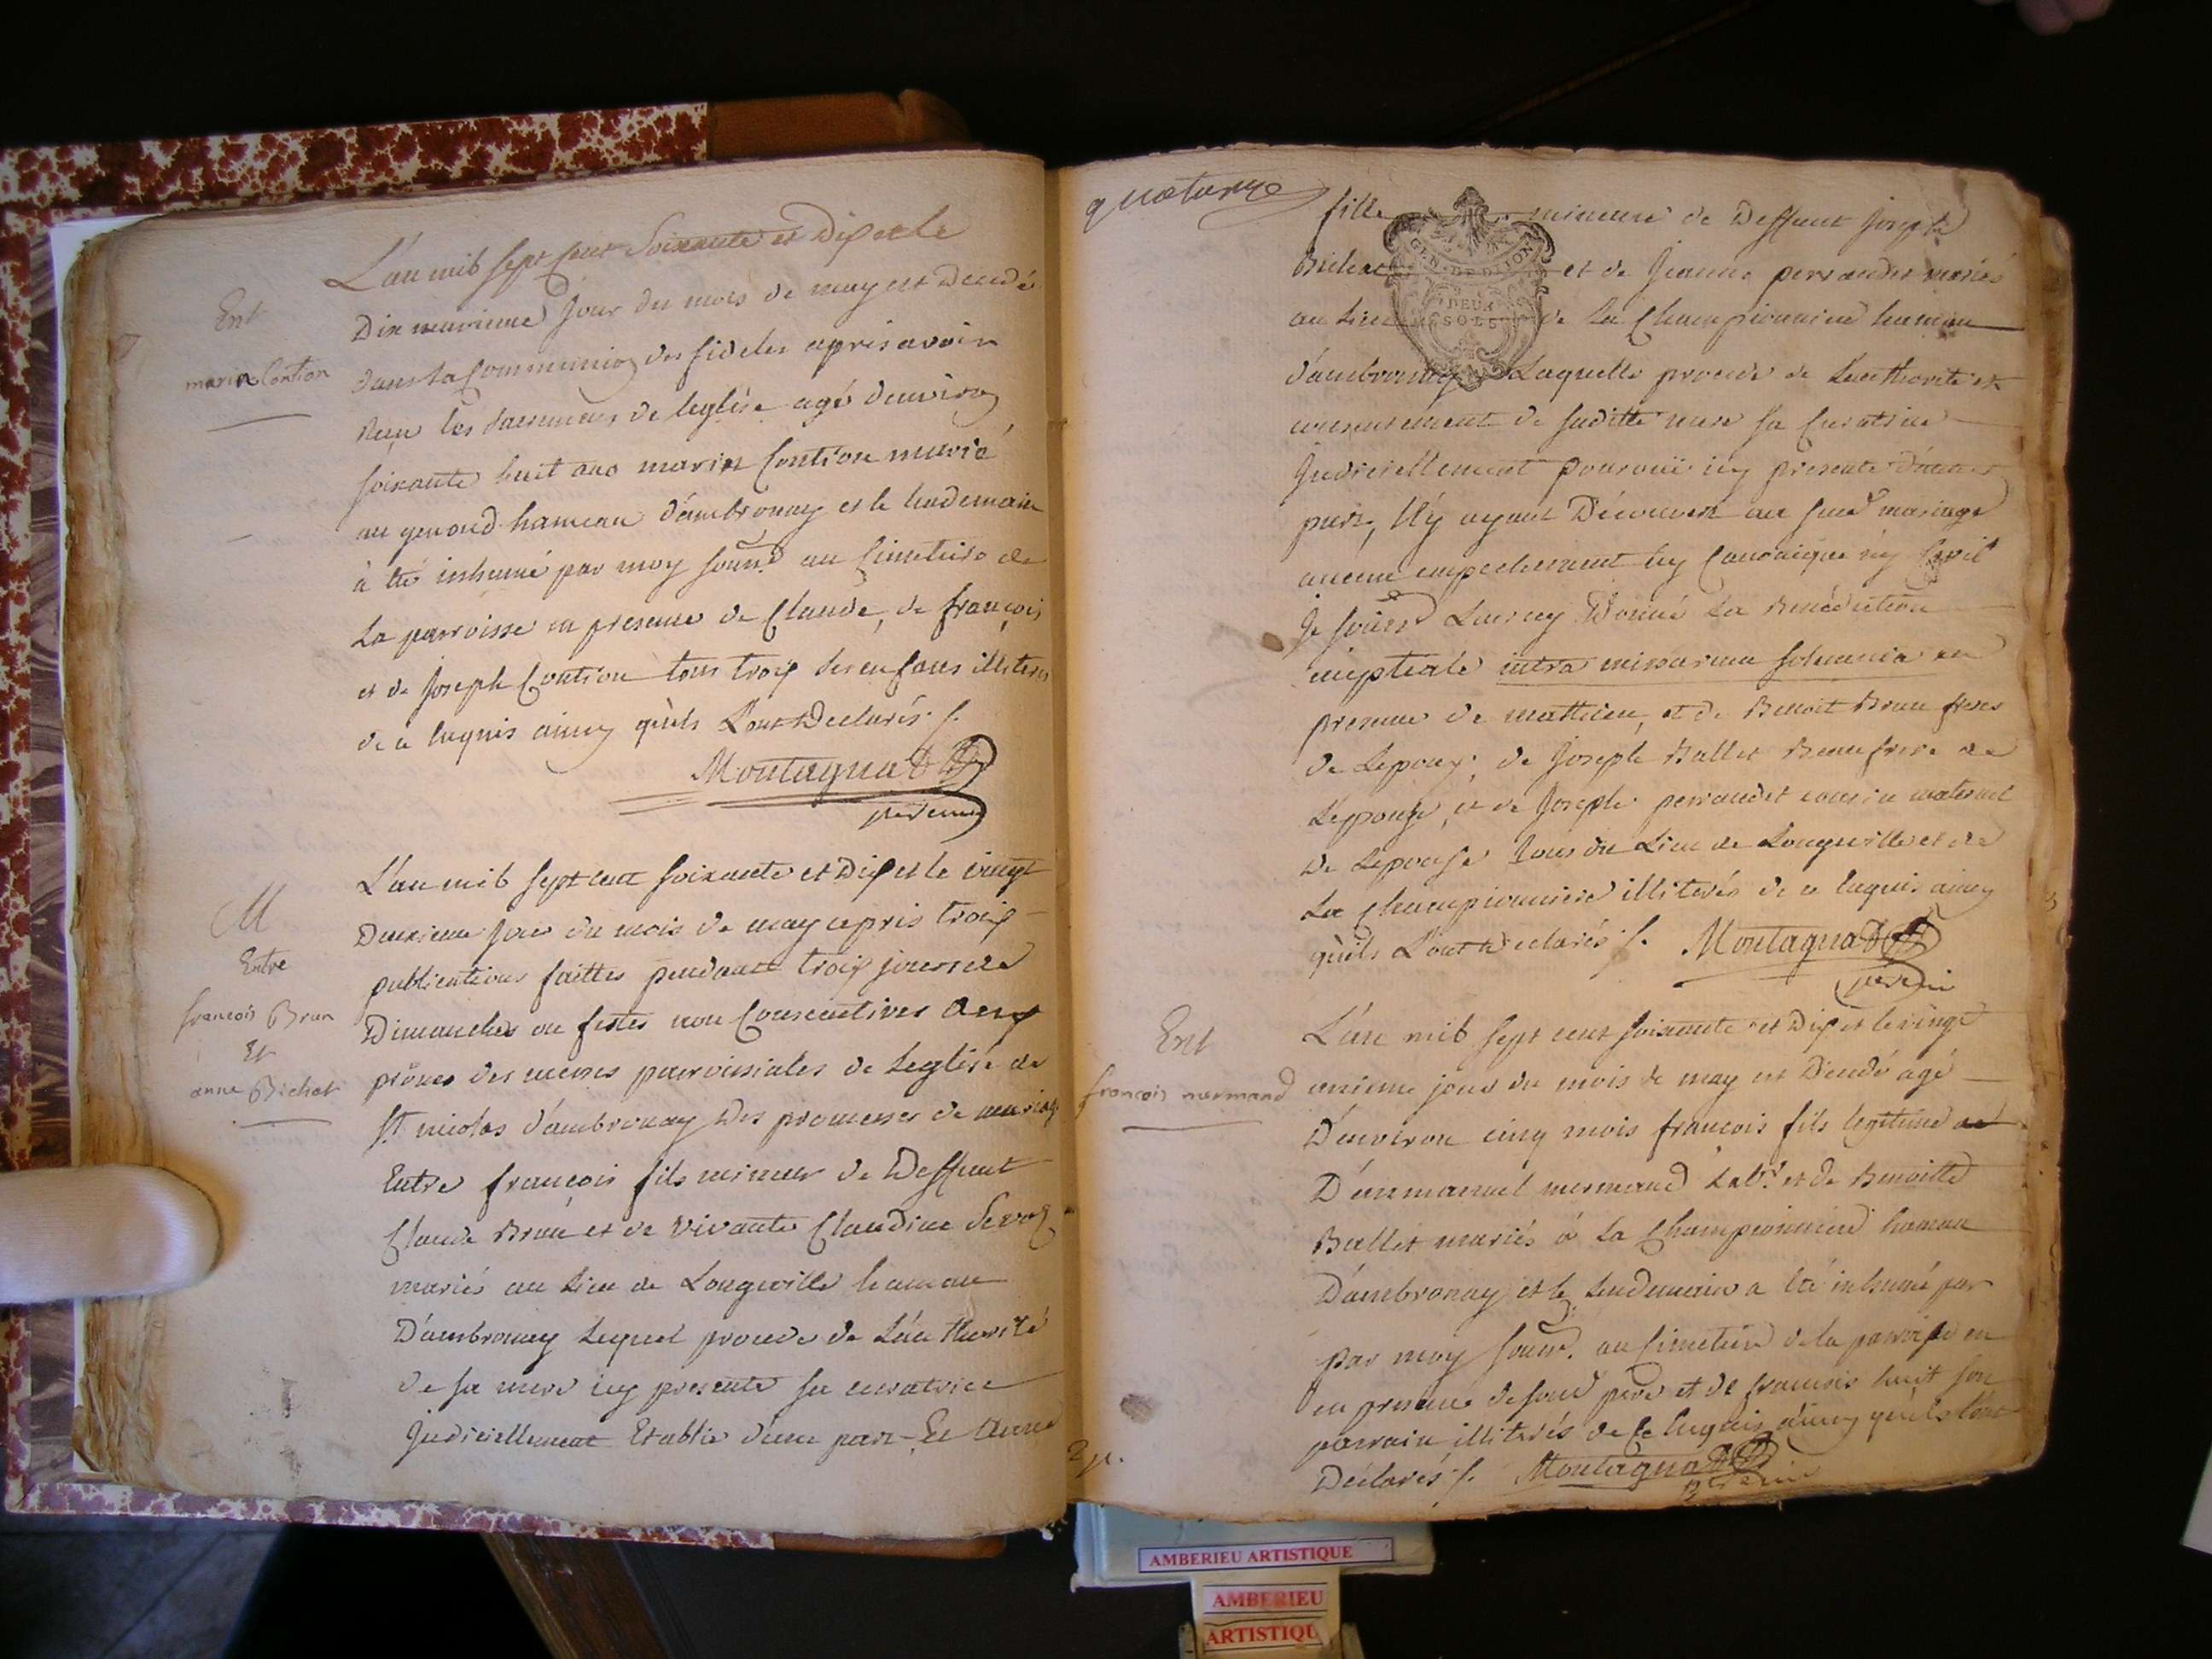 L'an mil sept cent Soixante et Dix et le
Ent
marin Contion
Dix neuvieme Jour du mois de may est Decedé
dans la Communion des fideles apres avoir
Reçu les sacremens de leglise agé denviron
soixante huit ans marin Contion marié
au genoud hameau d'ambronay et le lendemain
à été inhumé par moy sousd au Cimetiere de
La parroisse en presence de Claude, de françois
et de Joseph Contion tous trois ses enfans illiteres
de ce enquis ainsy qu'ils L'ont Declarés /.
Montagnat
M
Entre
francois Brun
Et
anne Bichat
L'an mil sept cent soixante et Dix et le vingt
Deuxieme jour du mois de may apris trois
publications faittes pendant trois jours de
Dimanches ou festes non Consecutives aux
prônes des messes parroissiales de Leglise de
St nicolas d'ambronay Des promesses de mariage
Entre françois fils mineur de Deffunt
Claude Brun et de vivante Claudine
mariés au Lieu de Longeville hameau
D'ambronay Lequel procede de L'authorité
de sa mere icy presente sa curatrice
Judiciellement Etablie d'une part Et Anne
quatorze
fille mineure de Deffunt Joseph
Bichat et de Jeanne perraudet mariés
GEN. DE DIJON
DEUX
SOLS
au Lieu de La Championniere hameau
d'ambronay Laquelle procede de Lauthorité et
consentement de saditte mere sa Curatrice
Judiciellement pourvuë icy presente d'autre
part, N'y ayant Découvert au sud mariage
aucun empechement ny Canonique ny Civil
Je sousd Leur ay Donné La Benédiction
nuptiale intra missarum solemnia en
presence de mathieu, et de Benoit Brun freres
de Lepoux, de Joseph Ballet Beaufrere de
Lepouse, et de Joseph perraudet cousin maternel
de Lepouse Tous du Lieu de Longeville et de
La Championniere illiterés de ce enquis ainsy
qu'ils L'ont Declarés /. Montagnat
Ent
francois mermand
L'an mil sept cent soixante et Dix et le vingt
unieme jour du mois de may est Decedé agé
D'environ cinq mois françois fils legitime
D'emmanuel mermand Labr et de Benoitte
Ballet mariés à La Championniere hameau
D'ambronay et le Lendemain a été inhumé par
par moy sousd. au Cimetiere de la parroisse en
en presence de sond pere et de francois huit son
parrain illiterés de ce enquis ainsy qu'ils l'ont
Déclarés /. Montagnat
AMBERIEU ARTISTIQUE
AMBERIEU
ARTISTIQU